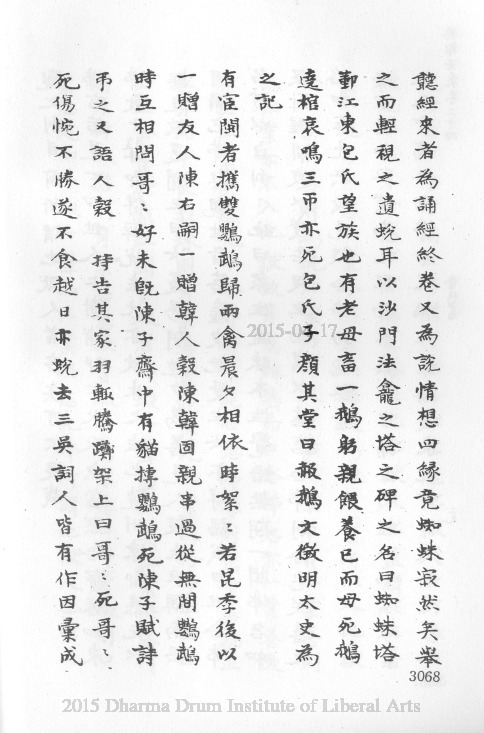 聽經來者為誦經終卷又為說情想四緣竟蜘蛛寂然矣舉
之而輕視之遺蛻耳以沙門法龕之塔之碑之名曰蜘蛛塔
鄞江東包氏望族也有老母畜一鵝躬親餵養已而母死鵝
遶棺哀鳴三帀亦死包氏子顏其堂曰報鵝文徵明太史為
之記
有宦閩者攜雙鸚鵡歸兩禽晨夕相依時絮〻若昆季後以
一贈友人陳右嗣一贈韓人穀陳韓固親串過從無間鸚鵡
時互相問哥〻好未既陳子齋中有貓摶鸚鵡死陳子賦詩
弔之又語人穀 持告其家羽輒騰躑架上曰哥〻死哥〻
死傷惋不勝遂不食越日亦蛻去三吳詞人皆有作因彙成
3068
2015-03-17
2015 Dharma Drum Institute of Liberal Arts